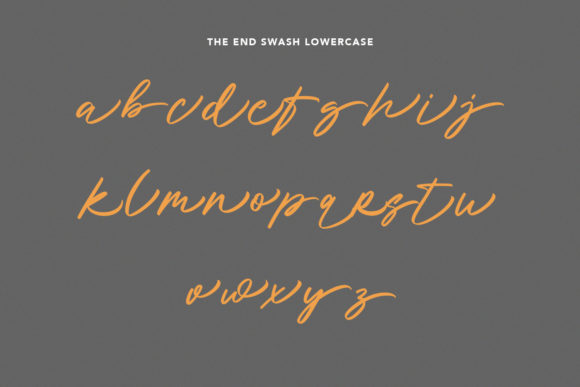 THE END SWASH LOWERCASE
abcdefghij
klmnopqrstu
vwxyz